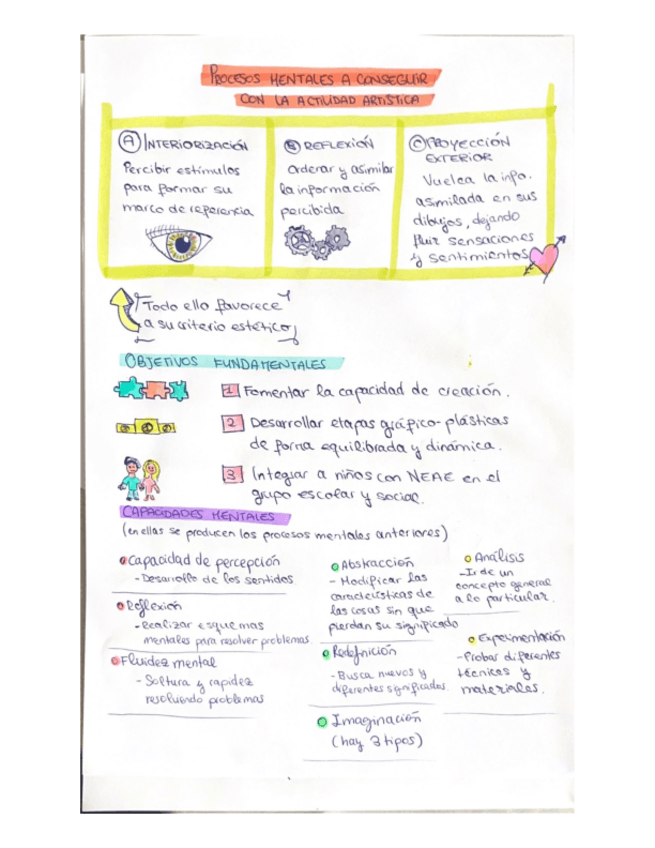 PROCESOS MENTALES A CONSEGUIR
CON LA ACTIVIDAD ARTISTICA
A INTERIORIZACIÓN
Percibir estímulos
para formar su
marco de referencia
B REFLEXIÓN
Ordenar y asimilar
la información
percibida
C PROYECCIÓN
EXTERIOR
Vuelca la info.
asimilada en sus
dibujos, dejando
fluir sensaciones
y sentimientos
Todo ello favorece
a su criterio estético
OBJETIVOS FUNDAMENTALES
1 Fomentar la capacidad de creación.
2 Desarrollar etapas gráfico-plásticas
de forma equilibrada y dinámica.
3 Integrar a niños con NEAE en el
grupo escolar y social.
CAPACIDADES MENTALES
(en ellas se producen los procesos mentales anteriores)
Capacidad de percepción
- Desarrollo de los sentidos
Reflexión
- Realizar esquemas
mentales para resolver problemas.
Fluidez mental
- Soltura y rapidez
resolviendo problemas
Abstracción
- Modificar las
características de
las cosas sin que
pierdan su significado
Redefinición
- Busca nuevos y
diferentes significados.
Imaginación
(hay 3 tipos)
Análisis
- Ir de un
concepto general
a lo particular.
Experimentación
- Probar diferentes
técnicas y
materiales.